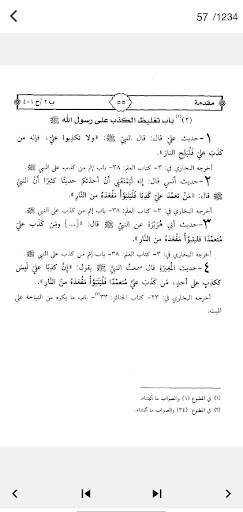 57 /1234
مقدمة
٥٥
ب ٢ / ح ١-٤
(٢)(١) باب تغليظ الكذب على رسول الله ﷺ
١- حديث عليّ قال: قال النبيّ ﷺ: «ولا تكذبوا عليّ، فإنه من
كذب عليّ فليلج النار».
أخرجه البخاري في: ٣- كتاب العلم: ٣٨- باب إثم من كذب على النبي ﷺ.
٢- حديث أنس قال: إنه ليمنعني أن أحدثكم حديثًا كثيرًا أنّ النبيّ
ﷺ قال: «من تعمد عليّ كذبًا فليتبوأ مقعده من النار».
أخرجه البخاري في: ٣- كتاب العلم: ٣٨- باب إثم من كذب على النبي ﷺ.
٣- حديث أبي هريرة عن النبيّ ﷺ قال: «[...] ومن كذب عليّ
متعمدًا فليتبوأ مقعده من النار».
أخرجه البخاري في: ٣- كتاب العلم: ٣٨- باب إثم من كذب على النبي ﷺ.
٤- حديث المغيرة قال سمعت النبيّ ﷺ يقول: «إنّ كذبًا عليّ ليس
ككذب على أحد، من كذب عليّ متعمدًا فليتبوأ مقعده من النار».
أخرجه البخاري في: ٢٣- كتاب الجنائز: ٣٣(٢)- باب ما يكره من النياحة على
الميت.
(١) في المطبوع (١) والصواب ما أثبتناه.
(٢) في المطبوع: (٣٤) والصواب ما أثبتناه.